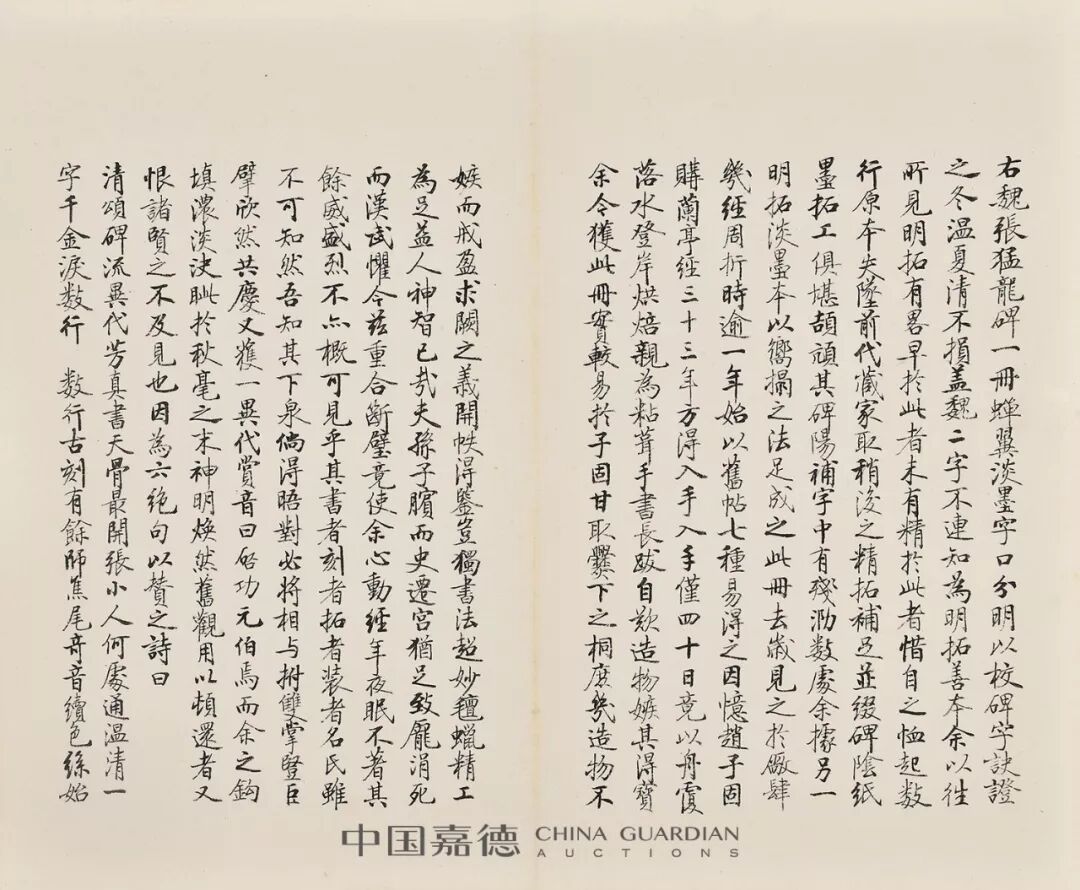 右魏張猛龍碑一冊蟬翼淡墨字口分明以校碑字訣證
之冬温夏清不損盖魏二字不連知為明拓善本余以往
所見明拓有畧早於此者未有精於此者惜自之恤起数
行原本失墜前代藏家取稍後之精拓補足並綴碑陰紙
墨拓工俱堪頡頏其碑陽補字中有殘泐数處余據另一
明拓淡墨本以嚮搨之法足成之此冊去歲見之於廠肆
幾經周折時逾一年始以舊帖七種易得之因憶趙子固
購蘭亭經三十三年方得入手入手僅四十日竟以舟覆
落水登岸烘焙親為粘葺手書長跋自欵造物嫉其得寶
余今獲此冊實較易於子固甘取爨下之桐庶幾造物不
嫉而戒盈求闕之義開帙得鑒豈獨書法超妙氊蠟精工
為足益人神智已哉夫孫子臏而史遷宫猶足致龐涓死
而漢武懼今茲重合斷璧竟使余心動經年夜眠不著其
餘威盛烈不亦概可見乎其書者刻者拓者装者名氏雖
不可知然吾知其下泉倘得晤對必將相与拊雙掌豎巨
擘欣然共慶又獲一異代賞音曰啓功元伯焉而余之鈎
填濃淡決眦於秋毫之末神明煥然舊觀用以頓還者又
恨諸賢之不及見也因為六絶句以贊之詩曰
清頌碑流異代芳真書天骨最開張小人何處通温清一
字千金淚数行 数行古刻有餘師焦尾奇音續色絲始
中国嘉德 CHINA GUARDIAN
AUCTIONS